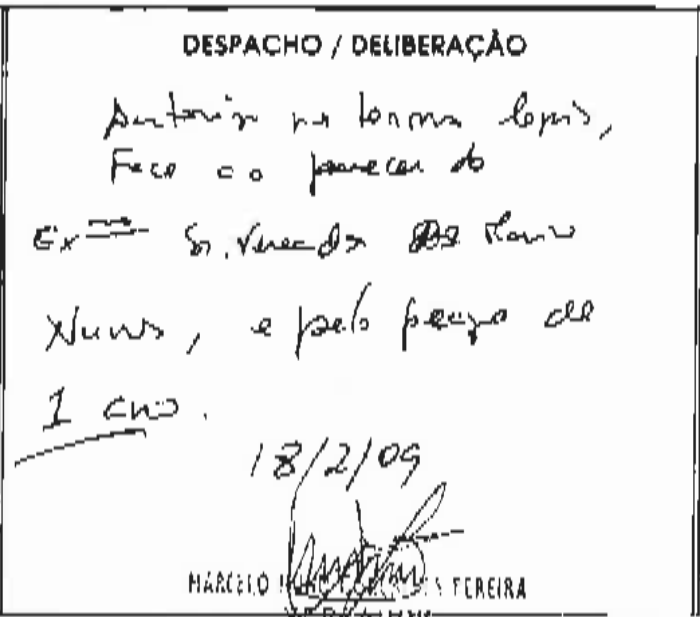 DESPACHO / DELIBERAÇÃO
nos termos legais,
Face ao parecer do
Ex Sr. Vereador
Nunes, e pelo prazo de
1 ano.
18/2/09
MARCELO FEREIRA